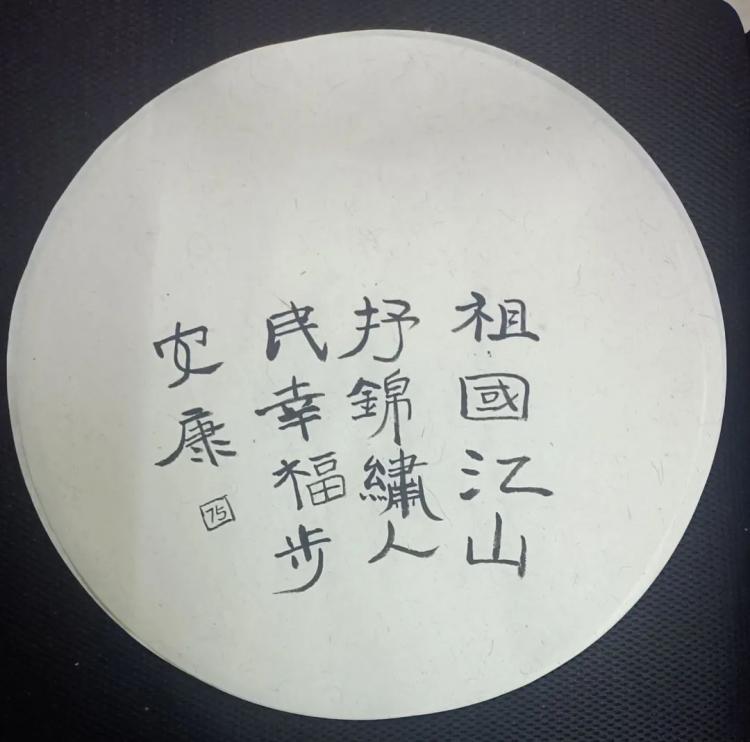 祖國江山
抒錦繡人
民幸福步
安康
75